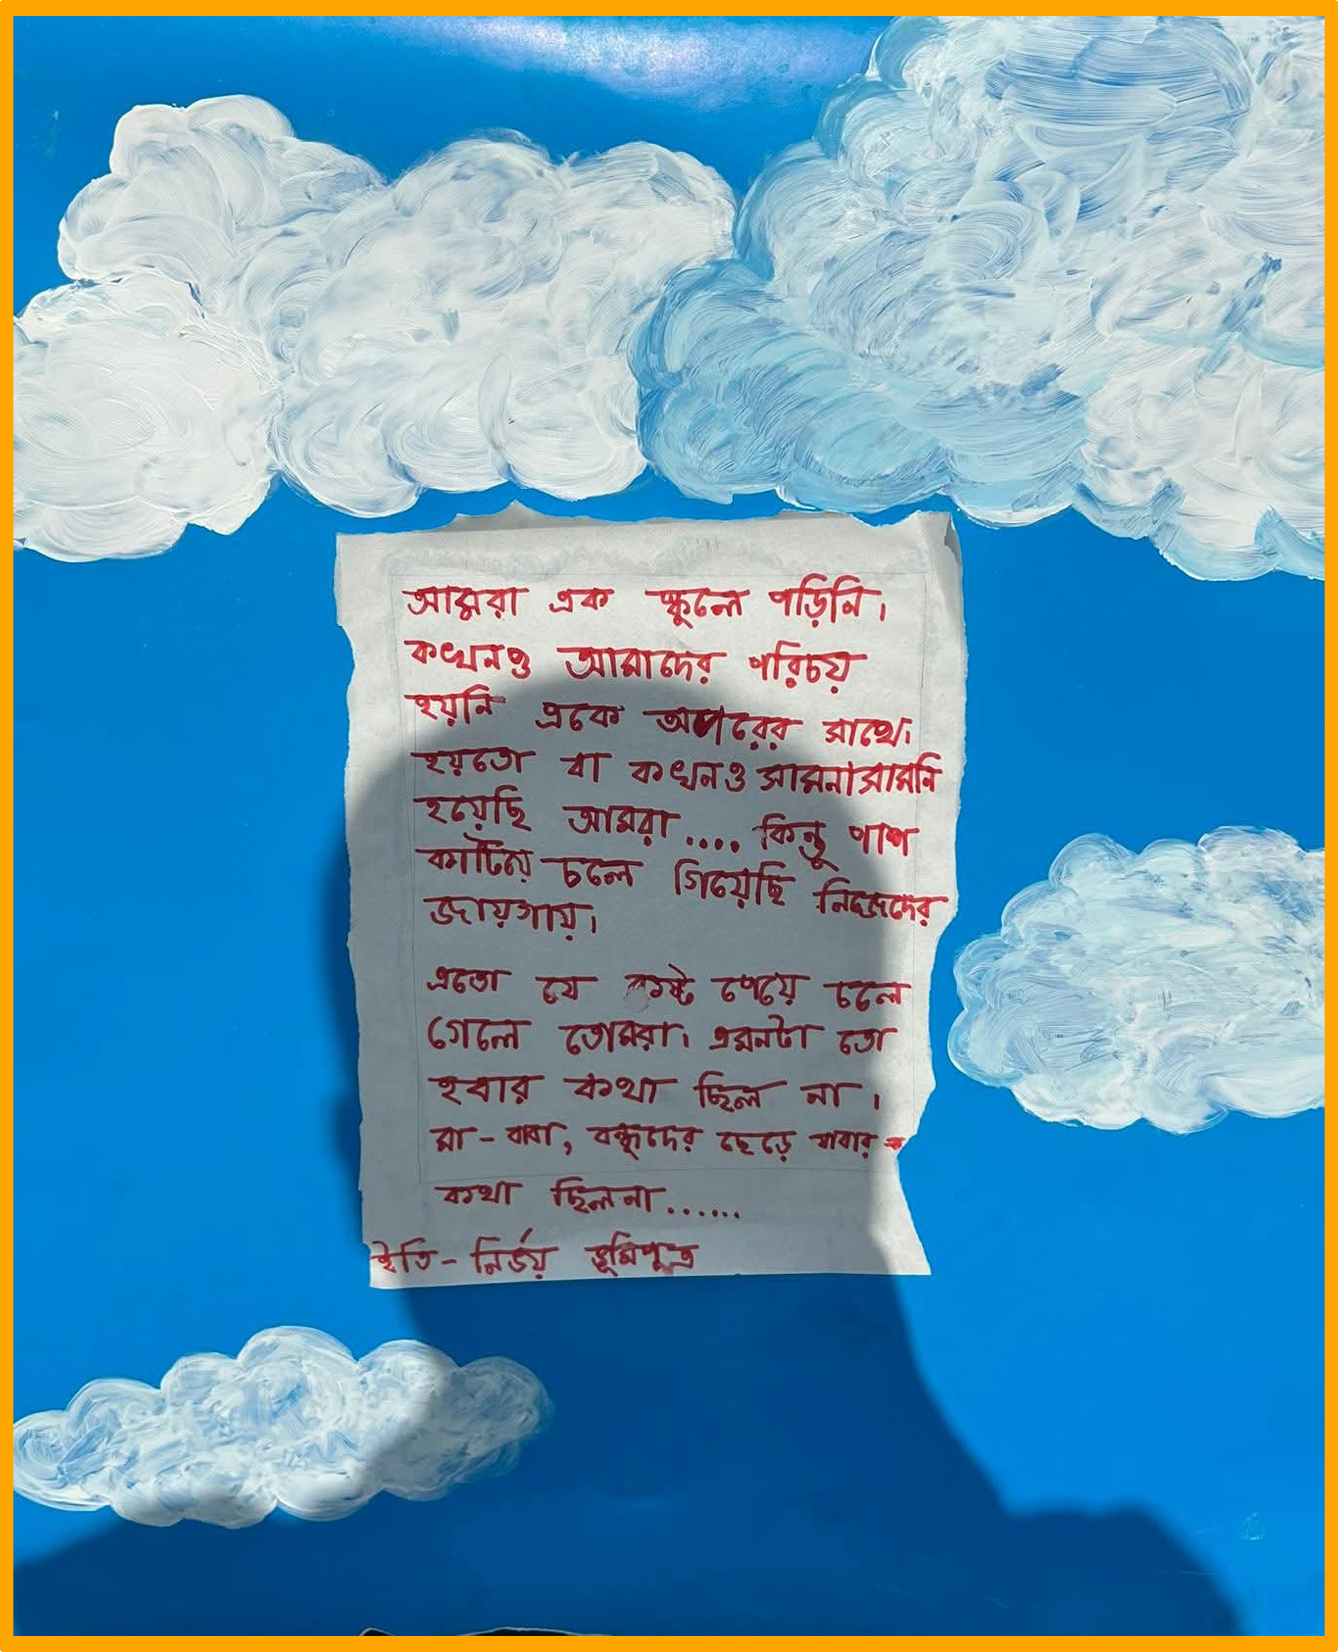 আমরা এক স্কুলে পড়িনি।
কখনও আমাদের পরিচয়
হয়নি একে অপরের সাথে।
হয়তো বা কখনও সামনাসামনি
হয়েছি আমরা .... কিন্তু পাশ
কাটিয়ে চলে গিয়েছি নিজেদের
জায়গায়।
এতো যে কষ্ট পেয়ে চলে
গেলে তোমরা। এমনটা তো
হবার কথা ছিল না।
মা - বাবা, বন্ধুদের ছেড়ে যাবার
কথা ছিলনা ......
ইতি - নির্ভয় ভূমিপুত্র